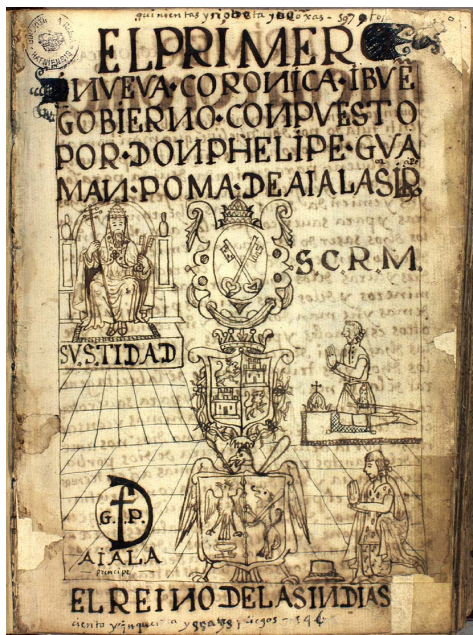 quinientas y nobeta y ẏ oxas - 597 oxas
EL PRIMER
NVEVA·CORONICA·IBVE
GOBIERNO·CONPVESTO
POR·DON PHELIPE·GVA
MAN·POMA·DEAIALASIR
S.C.R.M.
SV.S.TIDAD
G..P.
AIALA
principe
EL REINO DELAS INDIAS
ciento y pliegos - 146